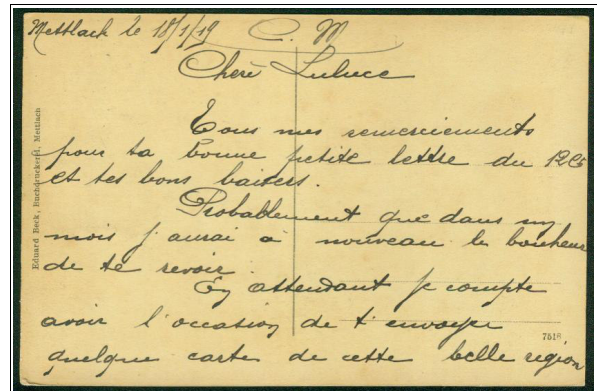 Mettlach le 18/1/19 C. M
Cheré Luluce
Tous mes remerciements
pour ta bonne petite lettre du 12 Cs
et tes bons baisers.
Probablement que dans un
mois j'aurai à nouveau le bonheur
de te revoir.
En attendant je compte
avoir l'occasion de t'envoyer
quelque cartes de cette belle region
Eduard Beck, Buchdruckerei, Mettlach
7518